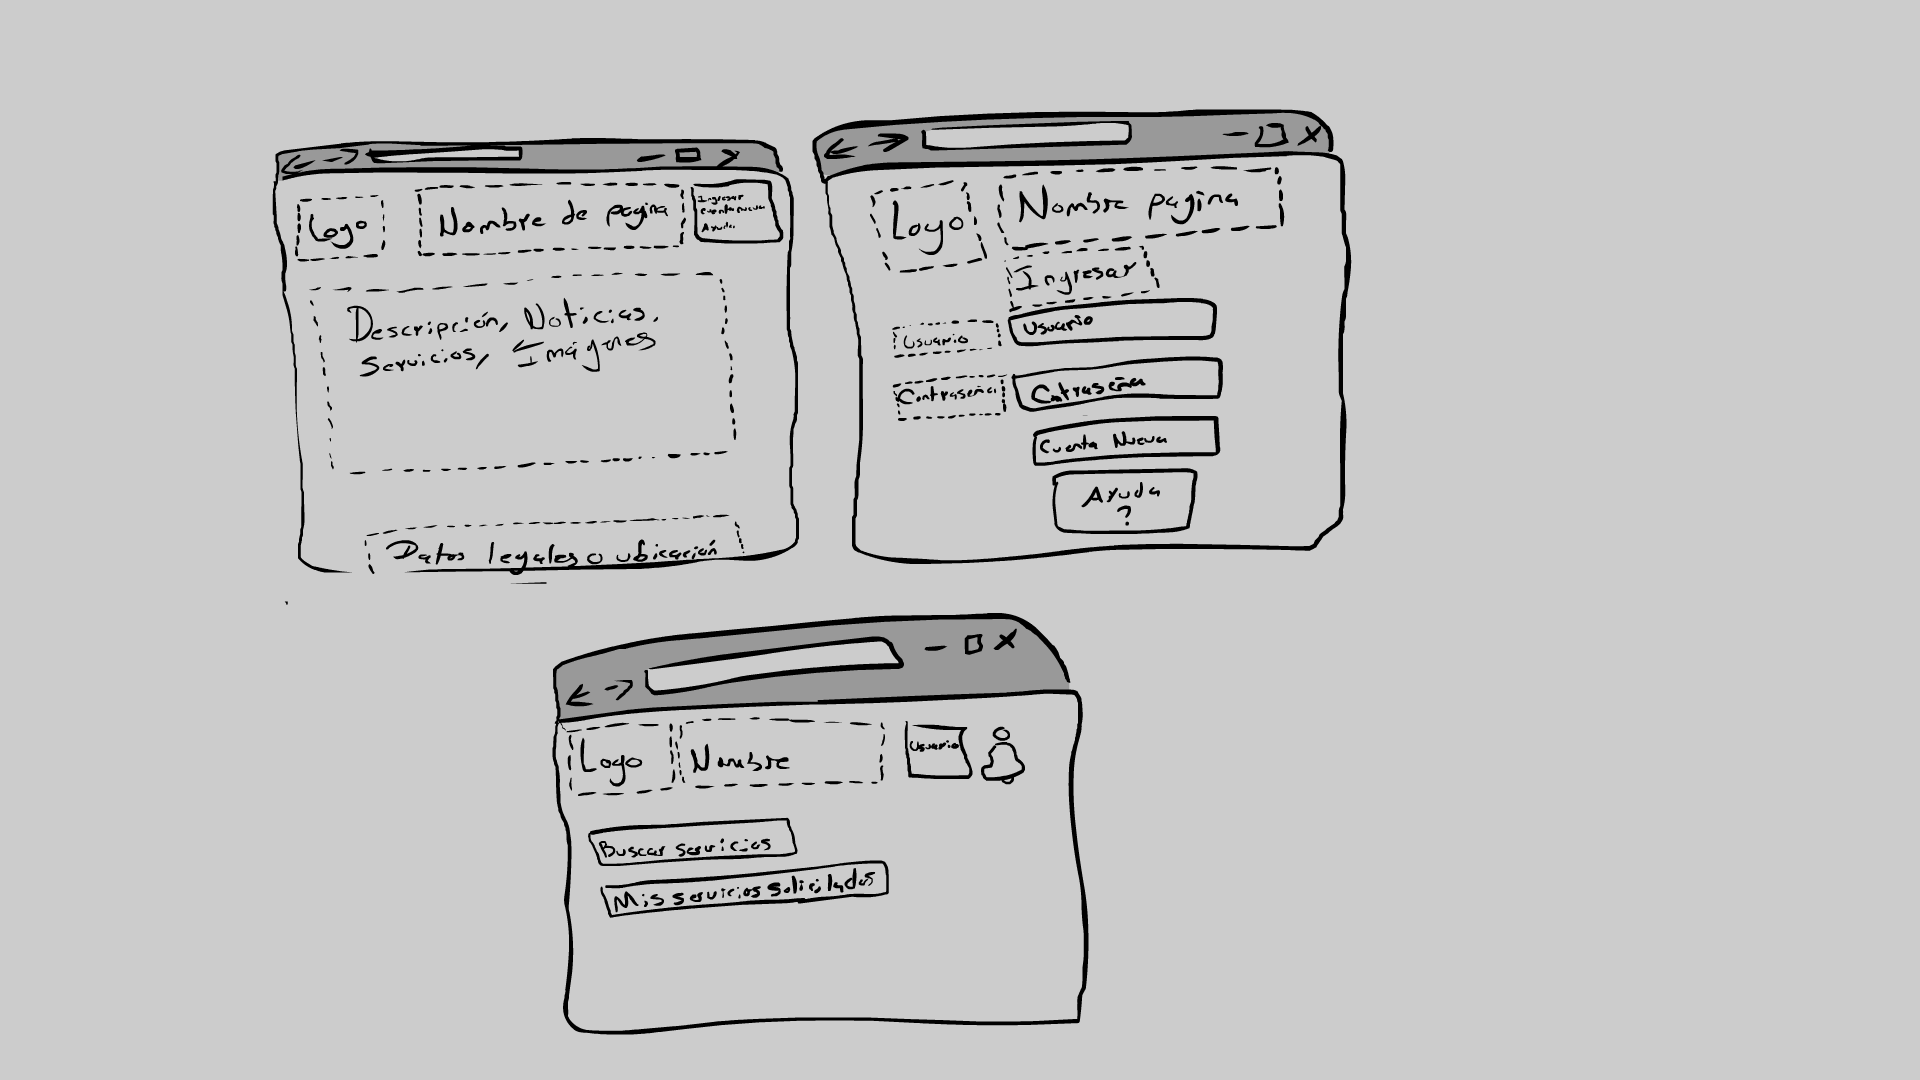 Logo
Nombre de pagina
Ingresar
Cuenta nueva
Ayuda
Descripción, Noticias,
servicios, Imágnes
Datos legales o ubicación
Logo
Nombre pagina
Ingresar
Usuario
Usuario
Contraseña
Cntraseña
Cuenta Nueva
Ayuda
?
Logo
Nombre
Usuario
Buscar servicios
Mis servicios solicitados